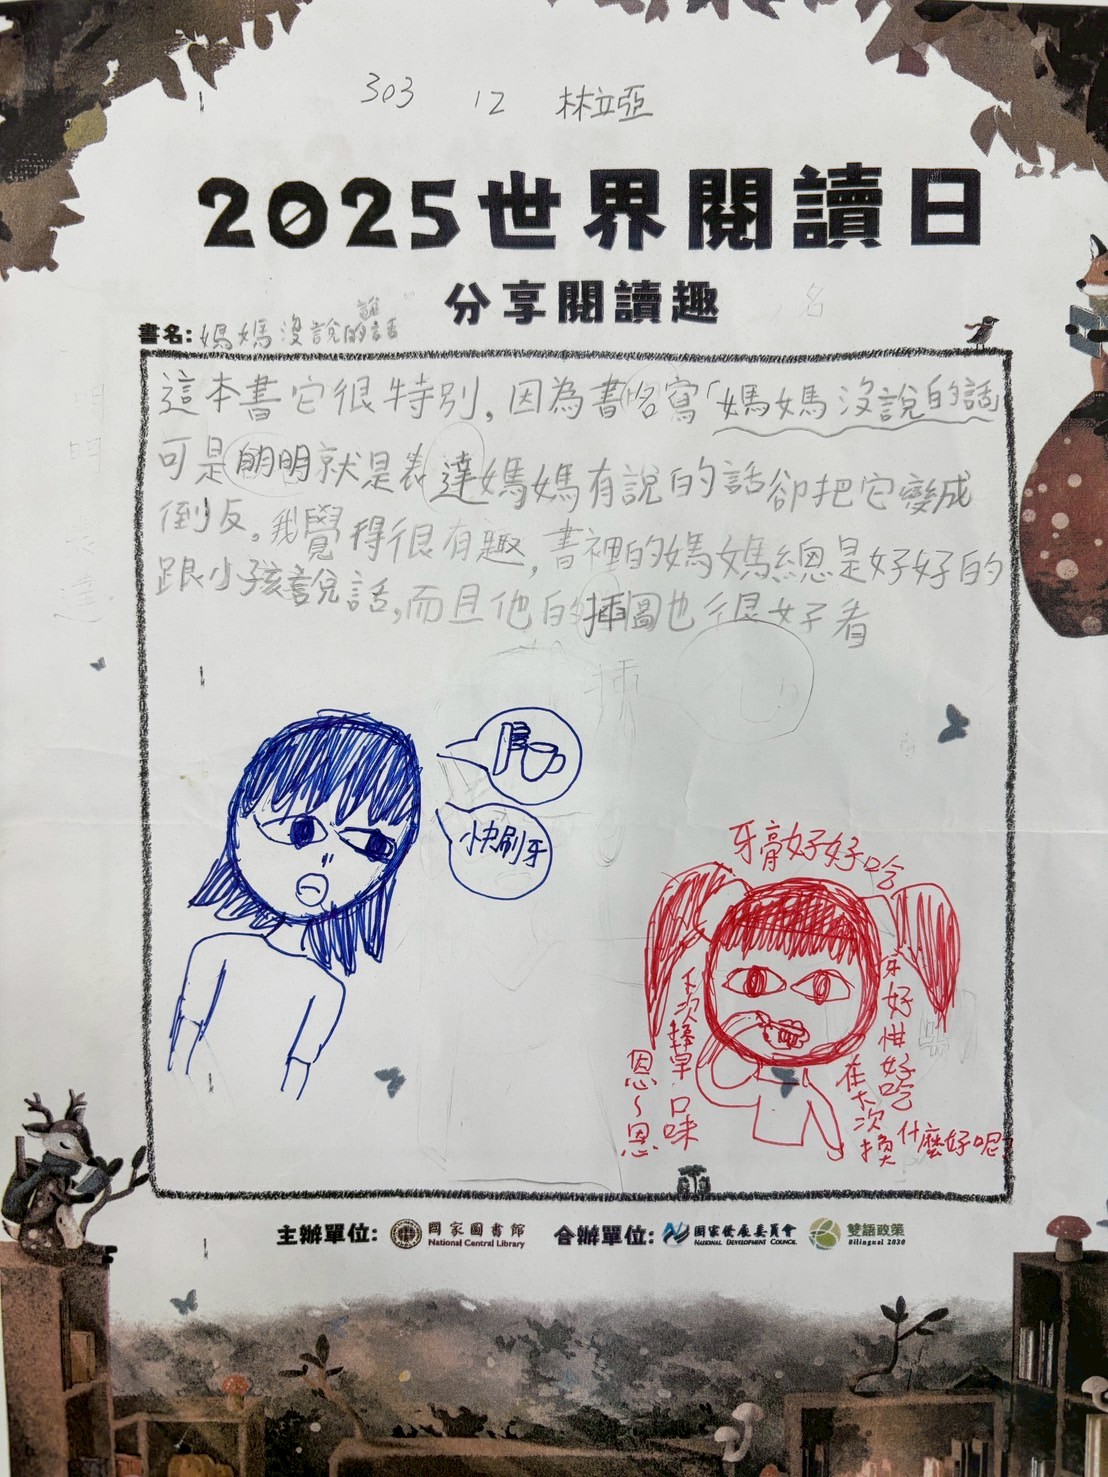 303 12 林立亞
2025世界閱讀日
分享閱讀趣
名
書名:媽媽沒說的話
這本書它很特別,因為書名寫「媽媽沒說的話
可是明明就是表達媽媽有說的話卻把它變成
倒反。我覺得很有趣,書裡的媽媽總是好好的
跟小孩說話,而且他的插圖也很好看
快刷牙
牙膏好好吃
牙好 好吃
下次換 口味
恩~恩
在下次換
什麼好呢?
主辦單位: 國家圖書館 National Central Library 合辦單位: 國家發展委員會 NATIONAL DEVELOPMENT COUNCIL 雙語政策 Bilingual 2030